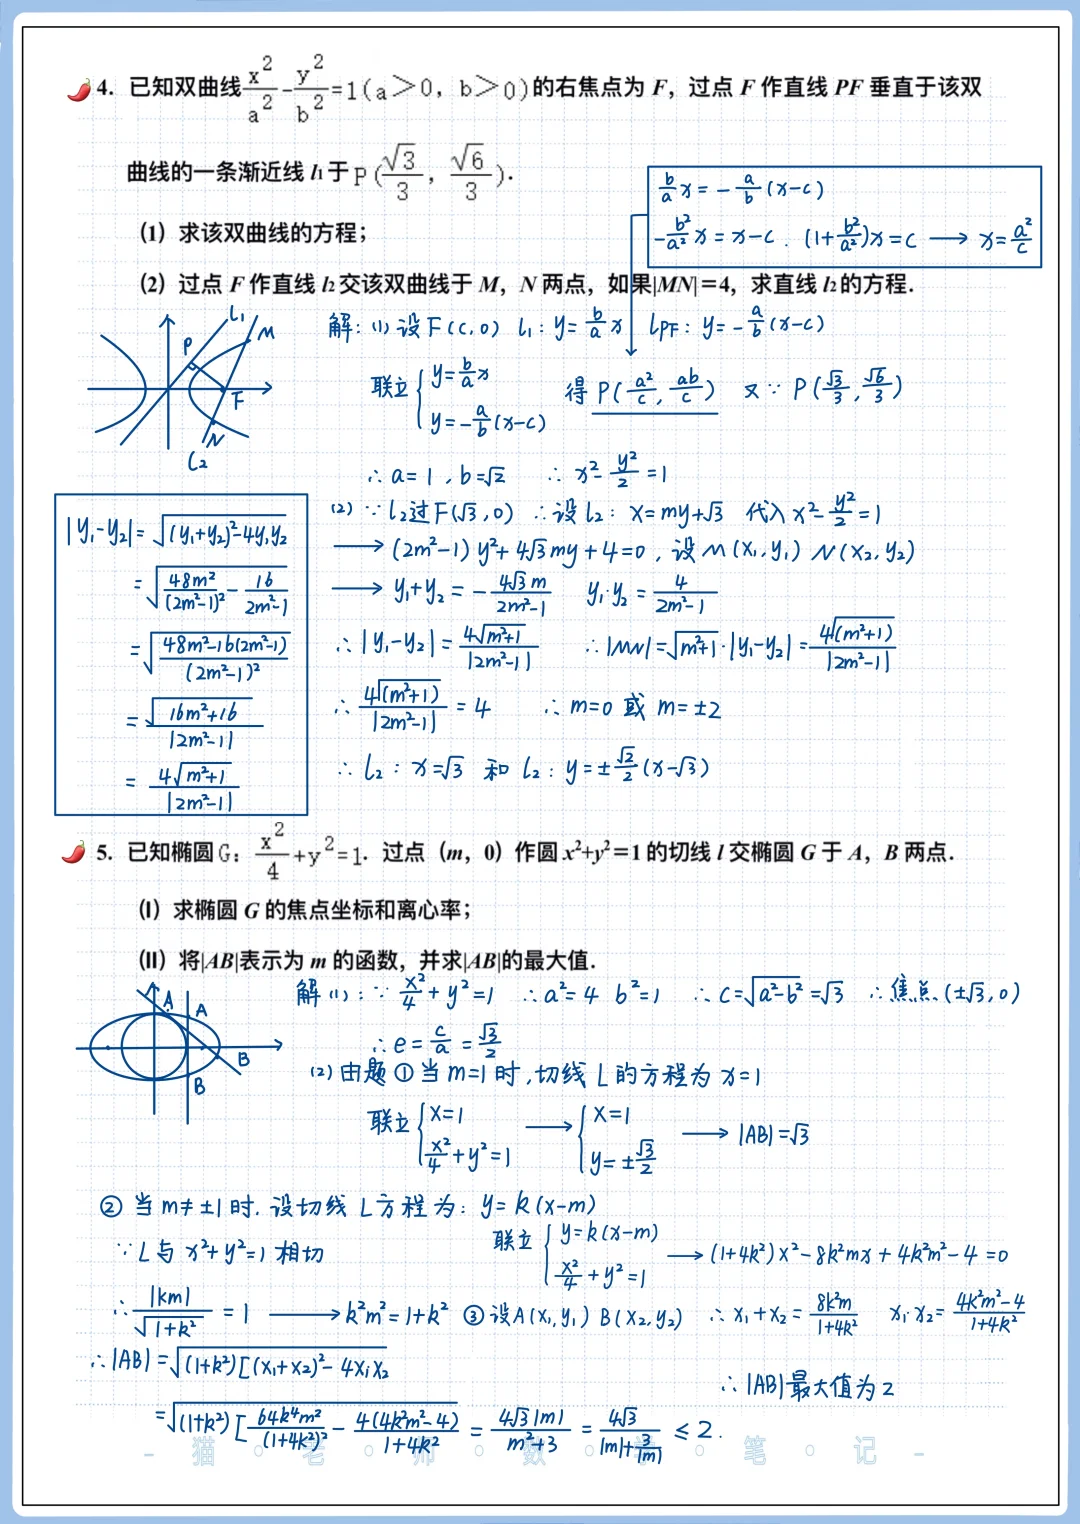 4. 已知双曲线x²/a²-y²/b²=1(a>0, b>0)的右焦点为 F，过点 F 作直线 PF 垂直于该双
曲线的一条渐近线 l₁ 于P(√3/3, √6/3).
(1) 求该双曲线的方程；
(2) 过点 F 作直线 l₂ 交该双曲线于 M，N 两点，如果|MN|=4，求直线 l₂ 的方程.
b/a x = -a/b (x-c)
-b²/a² x = x-c . (1+b²/a²)x = c → x = a²/c
l₁
M
P
F
N
l₂
解: (1) 设F(c,0) l₁: y= b/a x l_PF: y= -a/b (x-c)
联立 { y= b/a x
y= -a/b (x-c)
得 P(a²/c, ab/c) 又∵ P(√3/3, √6/3)
∴ a=1, b=√2 ∴ x²-y²/2=1
(2) ∵ l₂过F(√3,0) ∴设 l₂: x=my+√3 代入 x²-y²/2=1
→ (2m²-1)y²+4√3my+4=0, 设M(x₁,y₁) N(x₂,y₂)
→ y₁+y₂ = -4√3m/(2m²-1) y₁·y₂ = 4/(2m²-1)
∴ |y₁-y₂| = 4√(m²+1)/|2m²-1| ∴ |MN|=√(m²+1)·|y₁-y₂| = 4(m²+1)/|2m²-1|
∴ 4(m²+1)/|2m²-1| = 4 ∴ m=0 或 m=±2
∴ l₂: x=√3 和 l₂: y=±√2/2(x-√3)
|y₁-y₂| = √((y₁+y₂)²-4y₁y₂)
= √(48m²/(2m²-1)² - 16/(2m²-1))
= √((48m²-16(2m²-1))/(2m²-1)²)
= √(16m²+16)/|2m²-1|
= 4√(m²+1)/|2m²-1|
5. 已知椭圆G: x²/4+y²=1. 过点（m，0）作圆 x²+y²=1 的切线 l 交椭圆 G 于 A，B 两点.
(Ⅰ) 求椭圆 G 的焦点坐标和离心率；
(Ⅱ) 将|AB|表示为 m 的函数，并求|AB|的最大值.
A
A
B
B
解(1): ∵ x²/4+y²=1 ∴ a²=4 b²=1 ∴ c=√(a²-b²)=√3 ∴ 焦点(±√3,0)
∴ e = c/a = √3/2
(2) 由题 ① 当m=1时, 切线 l 的方程为 x=1
联立 { x=1
x²/4+y²=1
→ { x=1
y=±√3/2
→ |AB|=√3
② 当m≠±1时. 设切线 l 方程为: y=k(x-m)
∵ l与 x²+y²=1 相切
联立 { y=k(x-m)
x²/4+y²=1
→ (1+4k²)x²-8k²mx+4k²m²-4=0
∴ |km|/√(1+k²) = 1 → k²m²=1+k² ③ 设A(x₁,y₁) B(x₂,y₂) ∴ x₁+x₂ = 8k²m/(1+4k²) x₁·x₂ = (4k²m²-4)/(1+4k²)
∴ |AB| = √((1+k²)[(x₁+x₂)²-4x₁x₂
∴ |AB|最大值为2
= √((1+k²)[64k⁴m²/(1+4k²)² - 4(4k²m²-4)/(1+4k²) = 4√3|m|/(m²+3) = 4√3/(|m|+3/|m|) ≤ 2.
- 猫 · 老 · 师 · 数 · 学 · 笔 · 记 -